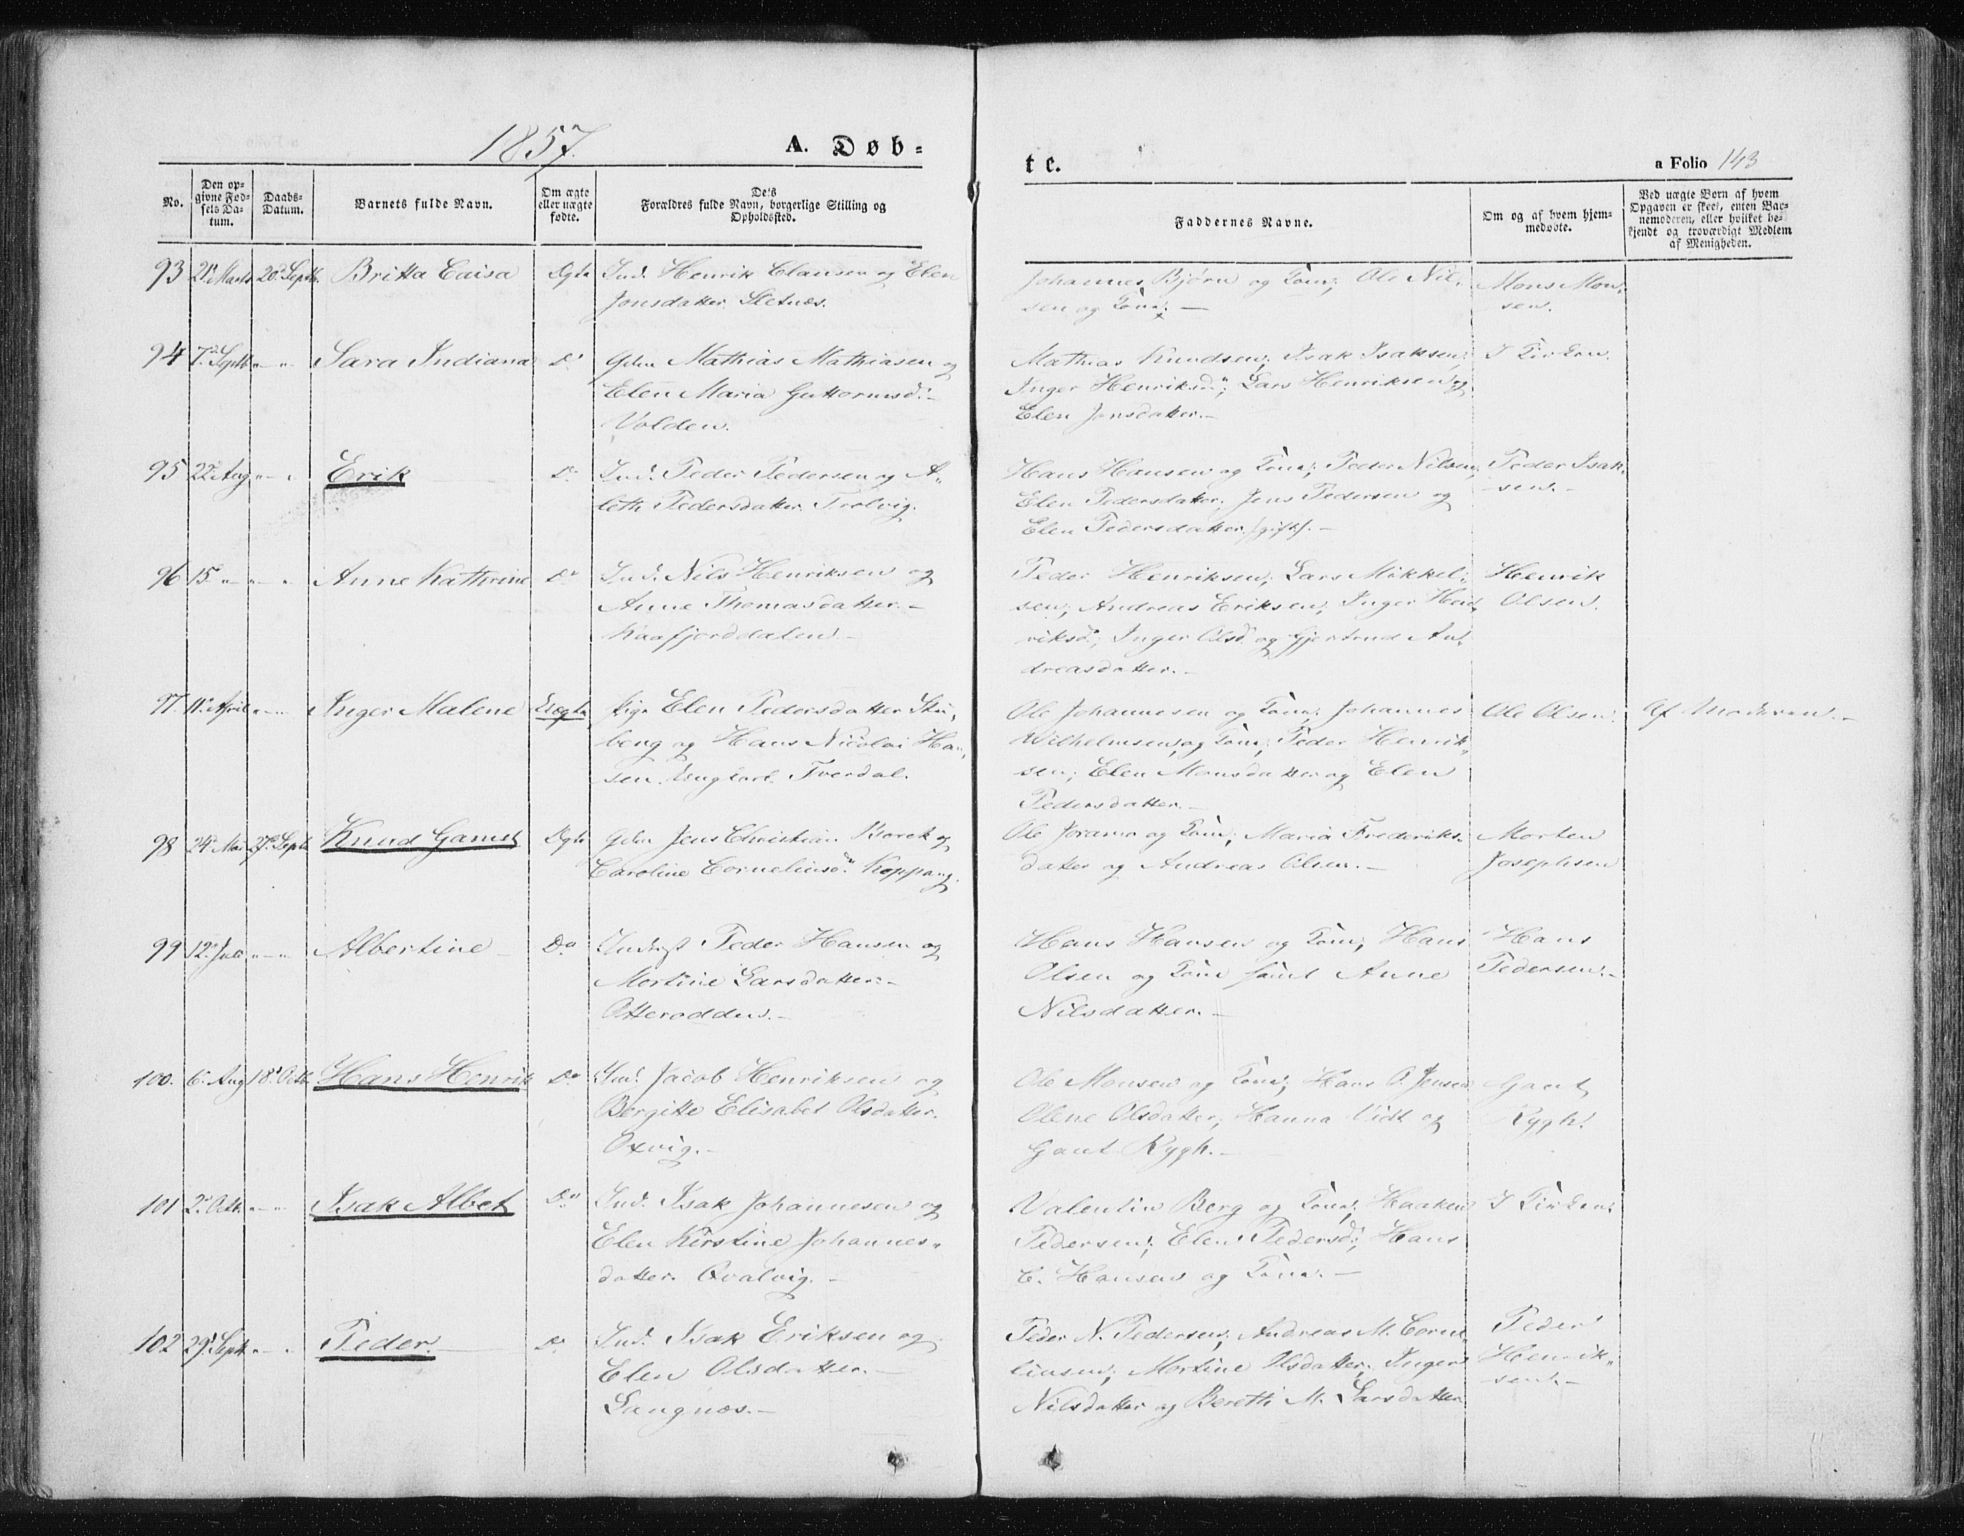 1857.
A. Døb-
te.
a Folio 143
No.
Den op-
givne Fød-
sels Da-
tum.
Daabs-
Datum.
Barnets fulde Navn.
Om ægte
eller uægte
fødte.
Forældres fulde Navn, borgerlige Stilling og
Opholdssted.
Faddernes Navne.
Om og af hvem hjem-
medøbt.
Ved uægte Børn af hvem
Opgaven er skeet, enten Bar-
nemoderen, eller hvilket be-
kjendt og troværdigt Medlem
af Menigheden.
93 21 Marts 20 Septb. Britta Caisa Ægte Ind. Henrik Clausen og Elen
Jonsdatter Sletnæs.
Johannes Bjørn og Kone; Ole Nil-
sen og Kone. —
Mons Mon-
sen.
94 7 Septb " — " Sara Indiana Do Gdm Mathias Mathiasen og
Elen Maria Guttormsd. —
Volden.
Mathias Knudsen; Isak Isaksen;
Inger Henriksd; Lars Henriksen og
Elen Jonsdatter. —
I Kirken.
95 22 Aug " — " Erik Do Ind. Peder Pedersen og A-
leth Pedersdatter Trolvig.
Hans Hansen og Kone; Peder Nilsen,
Elen Pedersdatter, Jens Pedersen og
Elen Pedersdatter (gift). —
Peder Isak-
sen. —
96 15 " — " — " Anne Kathrine Do Ind. Nils Henriksen og
Anne Thomasdatter. —
Kaafjorddalen —
Peder Henriksen; Lars Mikkel-
sen; Andreas Eriksen; Inger Hen-
riksd; Inger Olsd og Gjertrud An-
dreasdatter. —
Henrik
Olsen.
97. 11 April " — " Inger Malene Uægte Pige Elen Pedersdatter Ski-
berg og Hans Nicolai Han-
sen. Ungkarl Tverdal.
Ole Johannesen og Kone; Johannes
Wilhelmsen og Kone; Peder Henrik-
sen; Elen Monsdatter og Elen
Pedersdatter. —
Ole Olsen.
Af Moderen. —
98 24 Mai 27 Septb Knud Gamst Ægte Gdm Jens Christian Borch og
Caroline Corneliusd. Koppang.
Ole Joramo og Kone; Maria Frederiks-
datter og Andreas Olsen. —
Morten
Josephsen
99 12 Juli " — " Albertine — Do Peder Hansen og
Mortine Larsdatter. —
Otterodden. —
Hans Hansen og Kone; Hans
Olsen og Kone samt Anne
Nilsdatter. —
Hans
Pedersen. —
100. 6 Aug 18 Octb. Hans Henrik Do Ind. Jacob Henriksen og
Bergitte Elisabet Olsdatter.
Oxvig. —
Ole Monsen og Kone; Hans O. Jensen
Olene Olsdatter; Hanna Vidt og
Gaut Rygh. —
Gaut
Rygh.
101 2 Octb. " — " Isak Albet Do Ind. Isak Johannesen og
Elen Kirstine Johannes-
datter. Qvalvig. —
Valentin Berg og Kone; Haaken
Pedersen; Elen Pedersd; Hans
C. Hansen og Kone. —
I Kirken.
102 29 Septb " — " Peder. Do Ind. Isak Eriksen og
Elen Olsdatter. —
Langnæs. —
Peder N. Pedersen; Andreas M. Corne-
liusen; Mortine Olsdatter; Inger
Nilsdatter og Beretti M. Larsdatter
Peder
Henrik-
sen. —